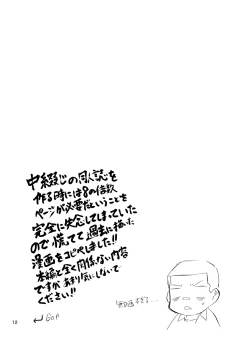 中綴じの同人誌を
作る時には8の倍数
ページが必要だということを
完全に失念してしまっていた
ので慌てて過去に描いた
漫画をコピペしました!!
本編と全く関係ない内容
ですが、あまり気にしないで
ください!!
無計画すぎる……
12